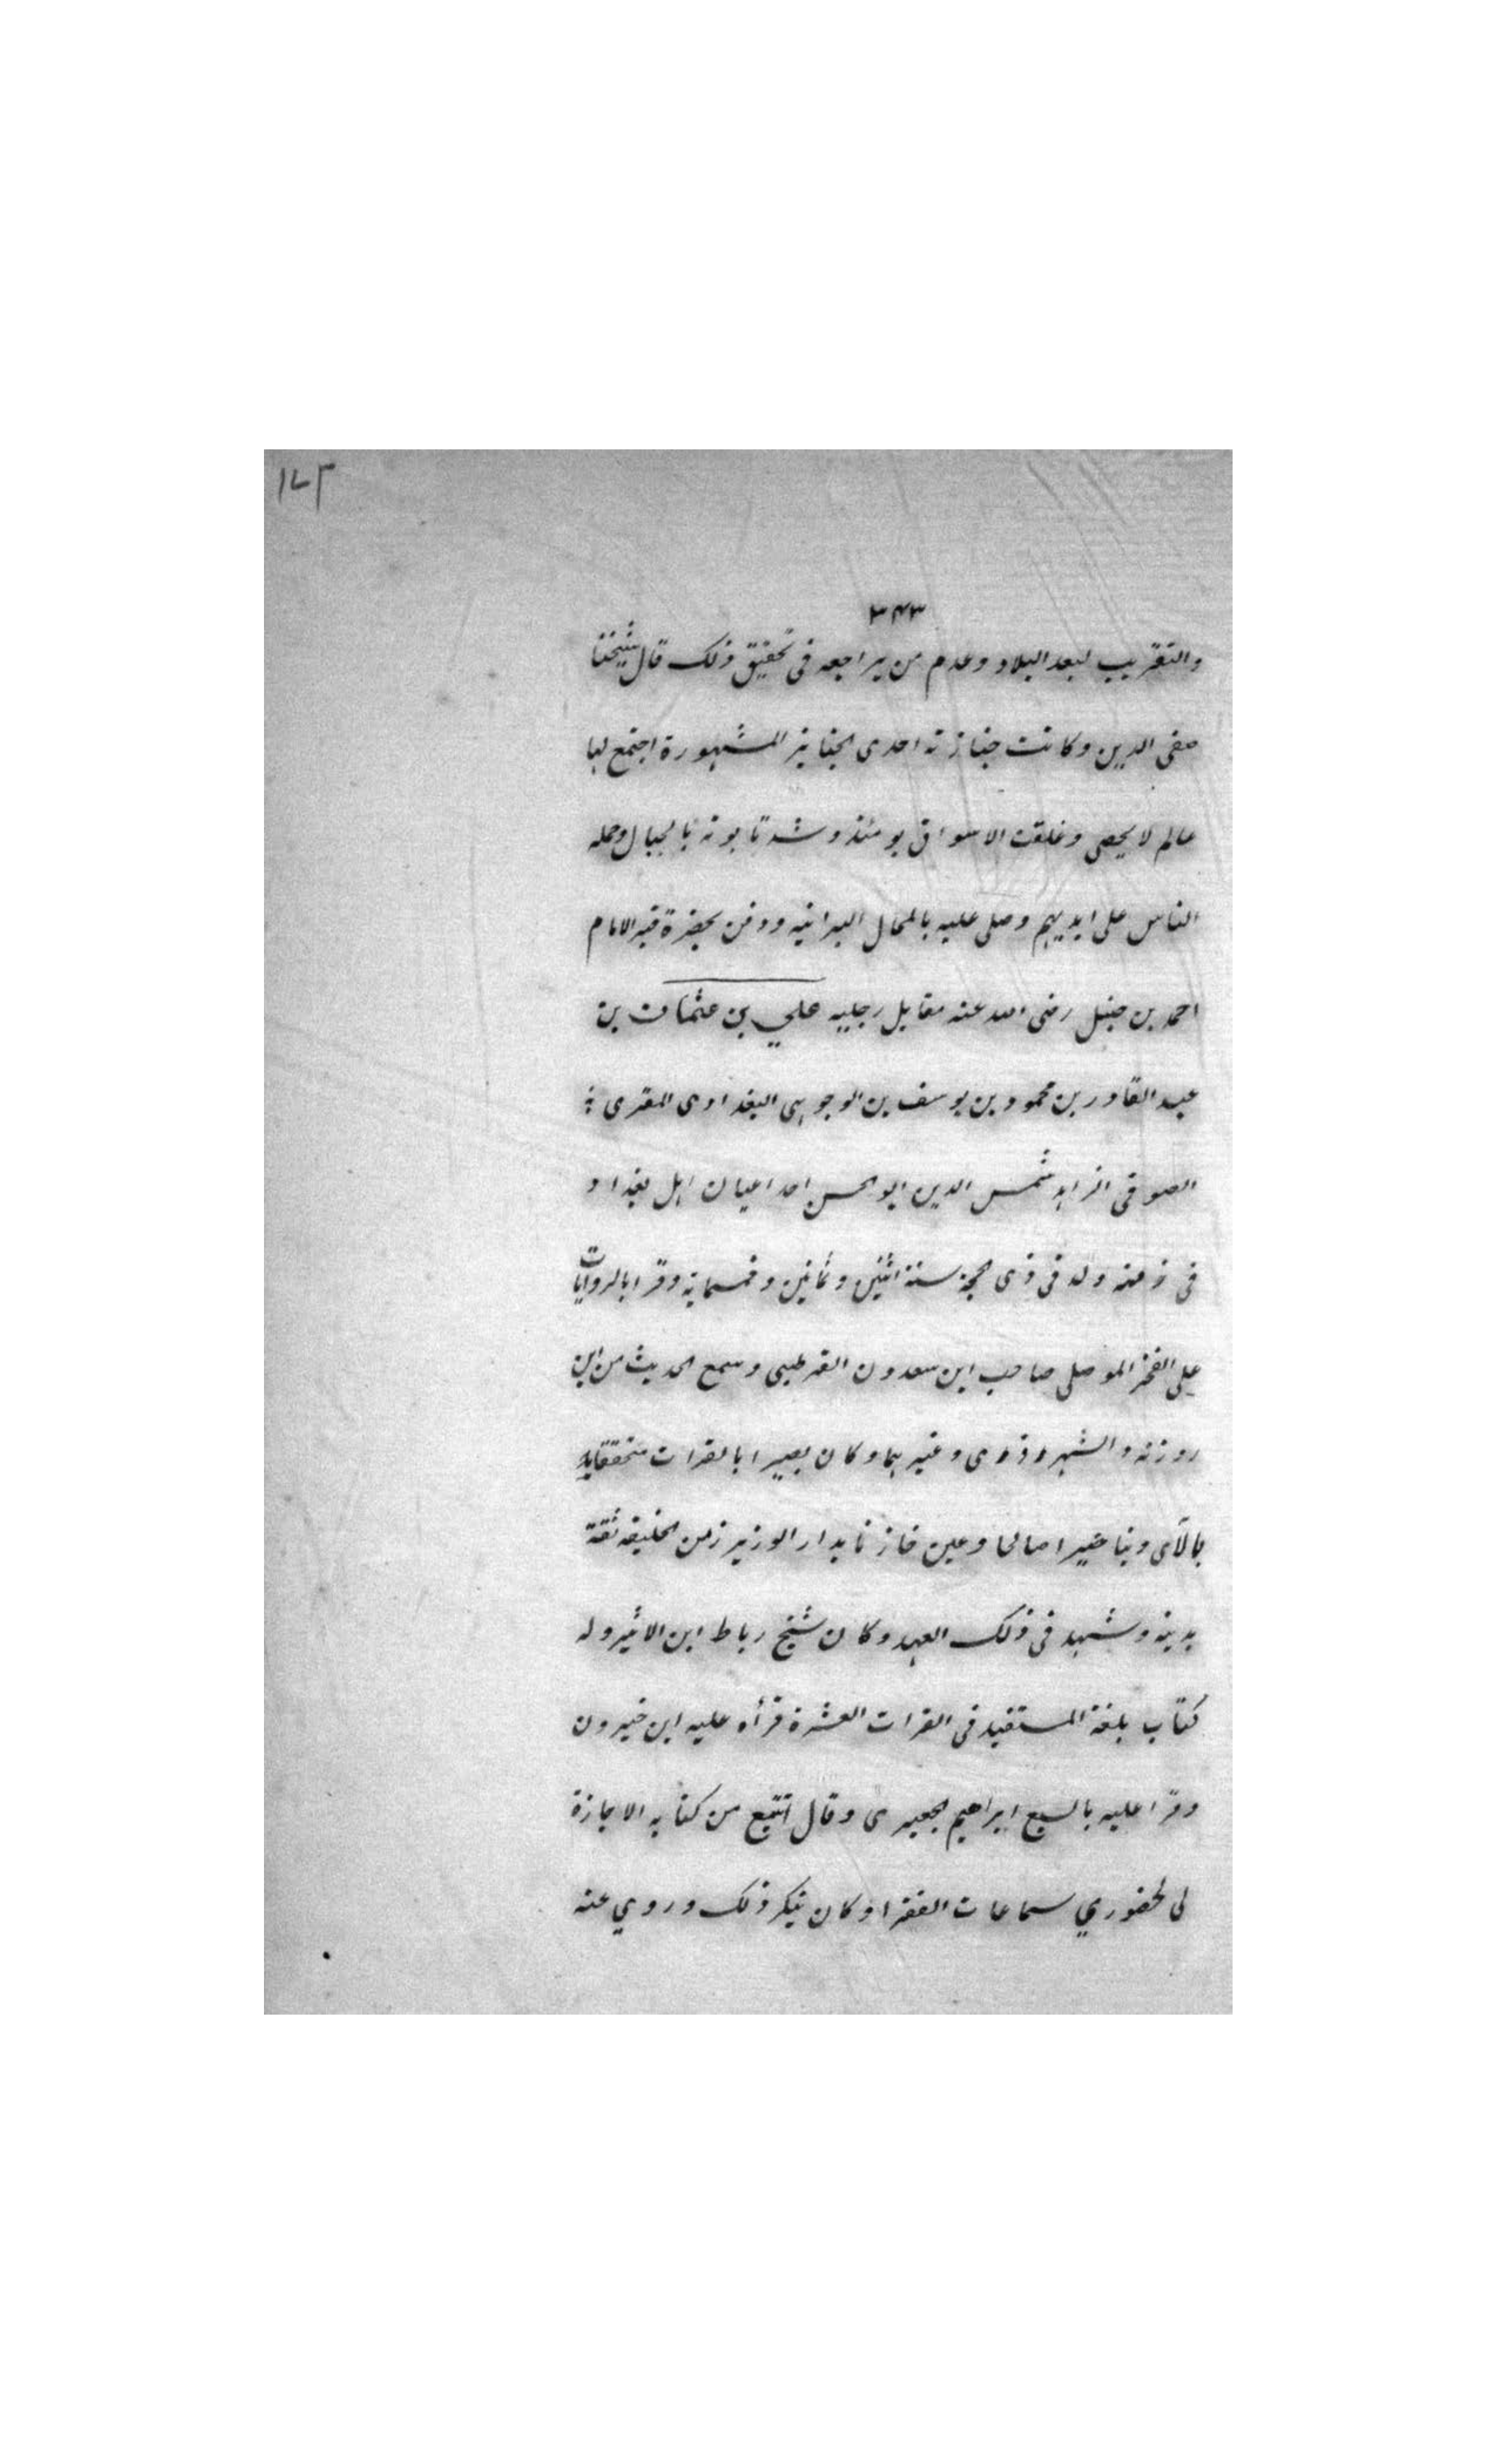 ١٧٢
٣٤٣
والتقريب لبعد البلاد وعدم من يراجعه فى تحقيق ذلك قال شيخنا
صفى الدين وكانت جنازته احدى الجنايز المشهورة اجتمع لها
عالم لا يحصى وغلقت الاسواق يومئذ وشد تابوته بالحبال وحمله
الناس على ايديهم وصلى عليه بالمحال البرانيه ودفن بحضرة قبر الامام
احمد بن حنبل رضى الله عنه مقابل رجليه علي بن عثمان بن
عبد القادر بن محمود بن يوسف بن الوجوهى البغدادى المقرى
الصوفى الزاهد شمس الدين ابو الحسن احد اعيان اهل بغداد
فى زمنه ولد فى ذى الحجة سنة اثنين وثمانين وخمسماية وقرا بالروايات
على الفخر الموصلى صاحب ابن سعدون القرطبى وسمع الحديث من ابن
روزنه والشهروذوى وغيرهما وكان بصيرا بالقرات متحققا به
بالآى دينا خيرا صالحا وعين خازنا بدار الوزير زمن الخليفه ثقة
بدينه وشهد فى ذلك العهد وكان شيخ رباط ابن الاثير وله
كتاب بلغة المستفيد فى القرات العشرة قرأه عليه ابن خيرون
وقرا عليه بالسبع ابراهيم الجعبرى وقال انتبع من كتابه الاجازة
لى لحضوري سماعات الفقرا وكان ينكر ذلك وروي عنه